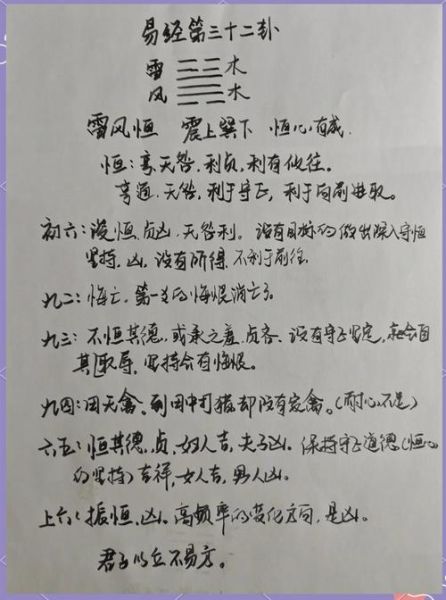 易经第三十二卦
雷 水
风 水
雷风恒 震上巽下 恒心有成.
恒:亨无咎,利贞,利有攸往。
亨通.无咎,利于守正,利于向前进取。
初六:浚恒.贞凶.无咎利。没有目标的做出深入守恒
坚持,凶,没有所得.不利于前往
九二:悔亡.第一爻的悔恨消亡了
九三:不恒其德,或承之羞,贞吝.没有守正坚定,就会自
其取辱,坚持会有悔恨。
九四:田无禽.到田中打猎却没有家禽。(耐心不足)
六五:恒其德,贞,妇人吉,夫子凶.保持守正道德(恒心
的坚持)吉祥,女人吉,男人凶。
上六:振恒,凶.高频率的变化方向,是凶。
君子以立不易方。